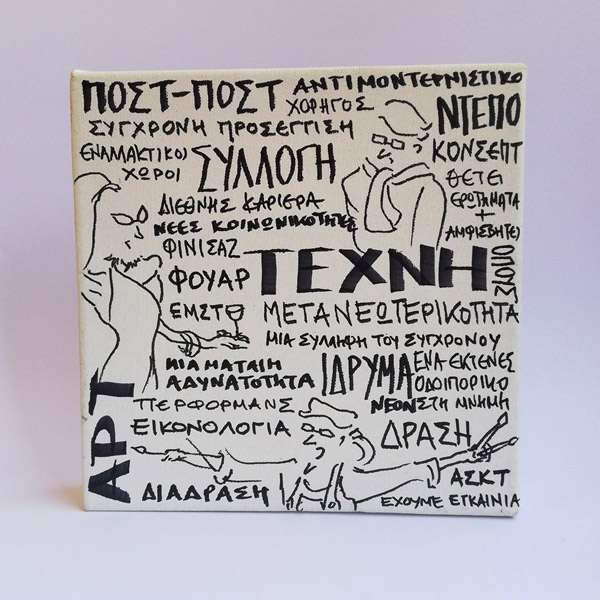 ΠΟΣΤ-ΠΟΣΤ
ΑΝΤΙΜΟΝΤΕΡΝΙΣΤΙΚΟ
ΧΟΡΗΓΟΣ
ΝΤΕΠΟ
ΣΥΓΧΡΟΝΗ ΠΡΟΣΕΓΓΙΣΗ
ΕΝΑΛΑΚΤΙΚΟΙ
ΧΩΡΟΙ
ΣΥΛΛΟΓΗ
ΚΟΝΣΕΠΤ
ΘΕΤΕΙ
ΕΡΩΤΗΜΑΤΑ
+
ΑΜΦΙΣΒΗΤΕΙ
ΔΙΕΘΝΗΣ ΚΑΡΙΕΡΑ
ΝΕΕΣ ΚΟΙΝΩΝΙΚΟΤΗΤΕΣ
ΦΙΝΙΣΑΖ
ΦΟΥΑΡ
ΤΕΧΝΗ
ΟΠΟΥΣ
ΕΜΣΤ
ΜΕΤΑΝΕΩΤΕΡΙΚΟΤΗΤΑ
ΜΙΑ ΣΥΛΛΗΨΗ ΤΟΥ ΣΥΓΧΡΟΝΟΥ
ΜΙΑ ΜΑΤΑΙΗ
ΑΔΥΝΑΤΟΤΗΤΑ
ΙΔΡΥΜΑ
ΕΝΑ ΕΚΤΕΝΕΣ
ΟΔΟΙΠΟΡΙΚΟ
ΣΤΗ ΜΝΗΜΗ
ΝΕΟΝ
ΑΡΤ
ΠΕΡΦΟΡΜΑΝΣ
ΕΙΚΟΝΟΛΟΓΙΑ
ΔΡΑΣΗ
ΔΙΑΔΡΑΣΗ
ΑΣΚΤ
ΕΧΟΥΜΕ ΕΓΚΑΙΝΙΑ